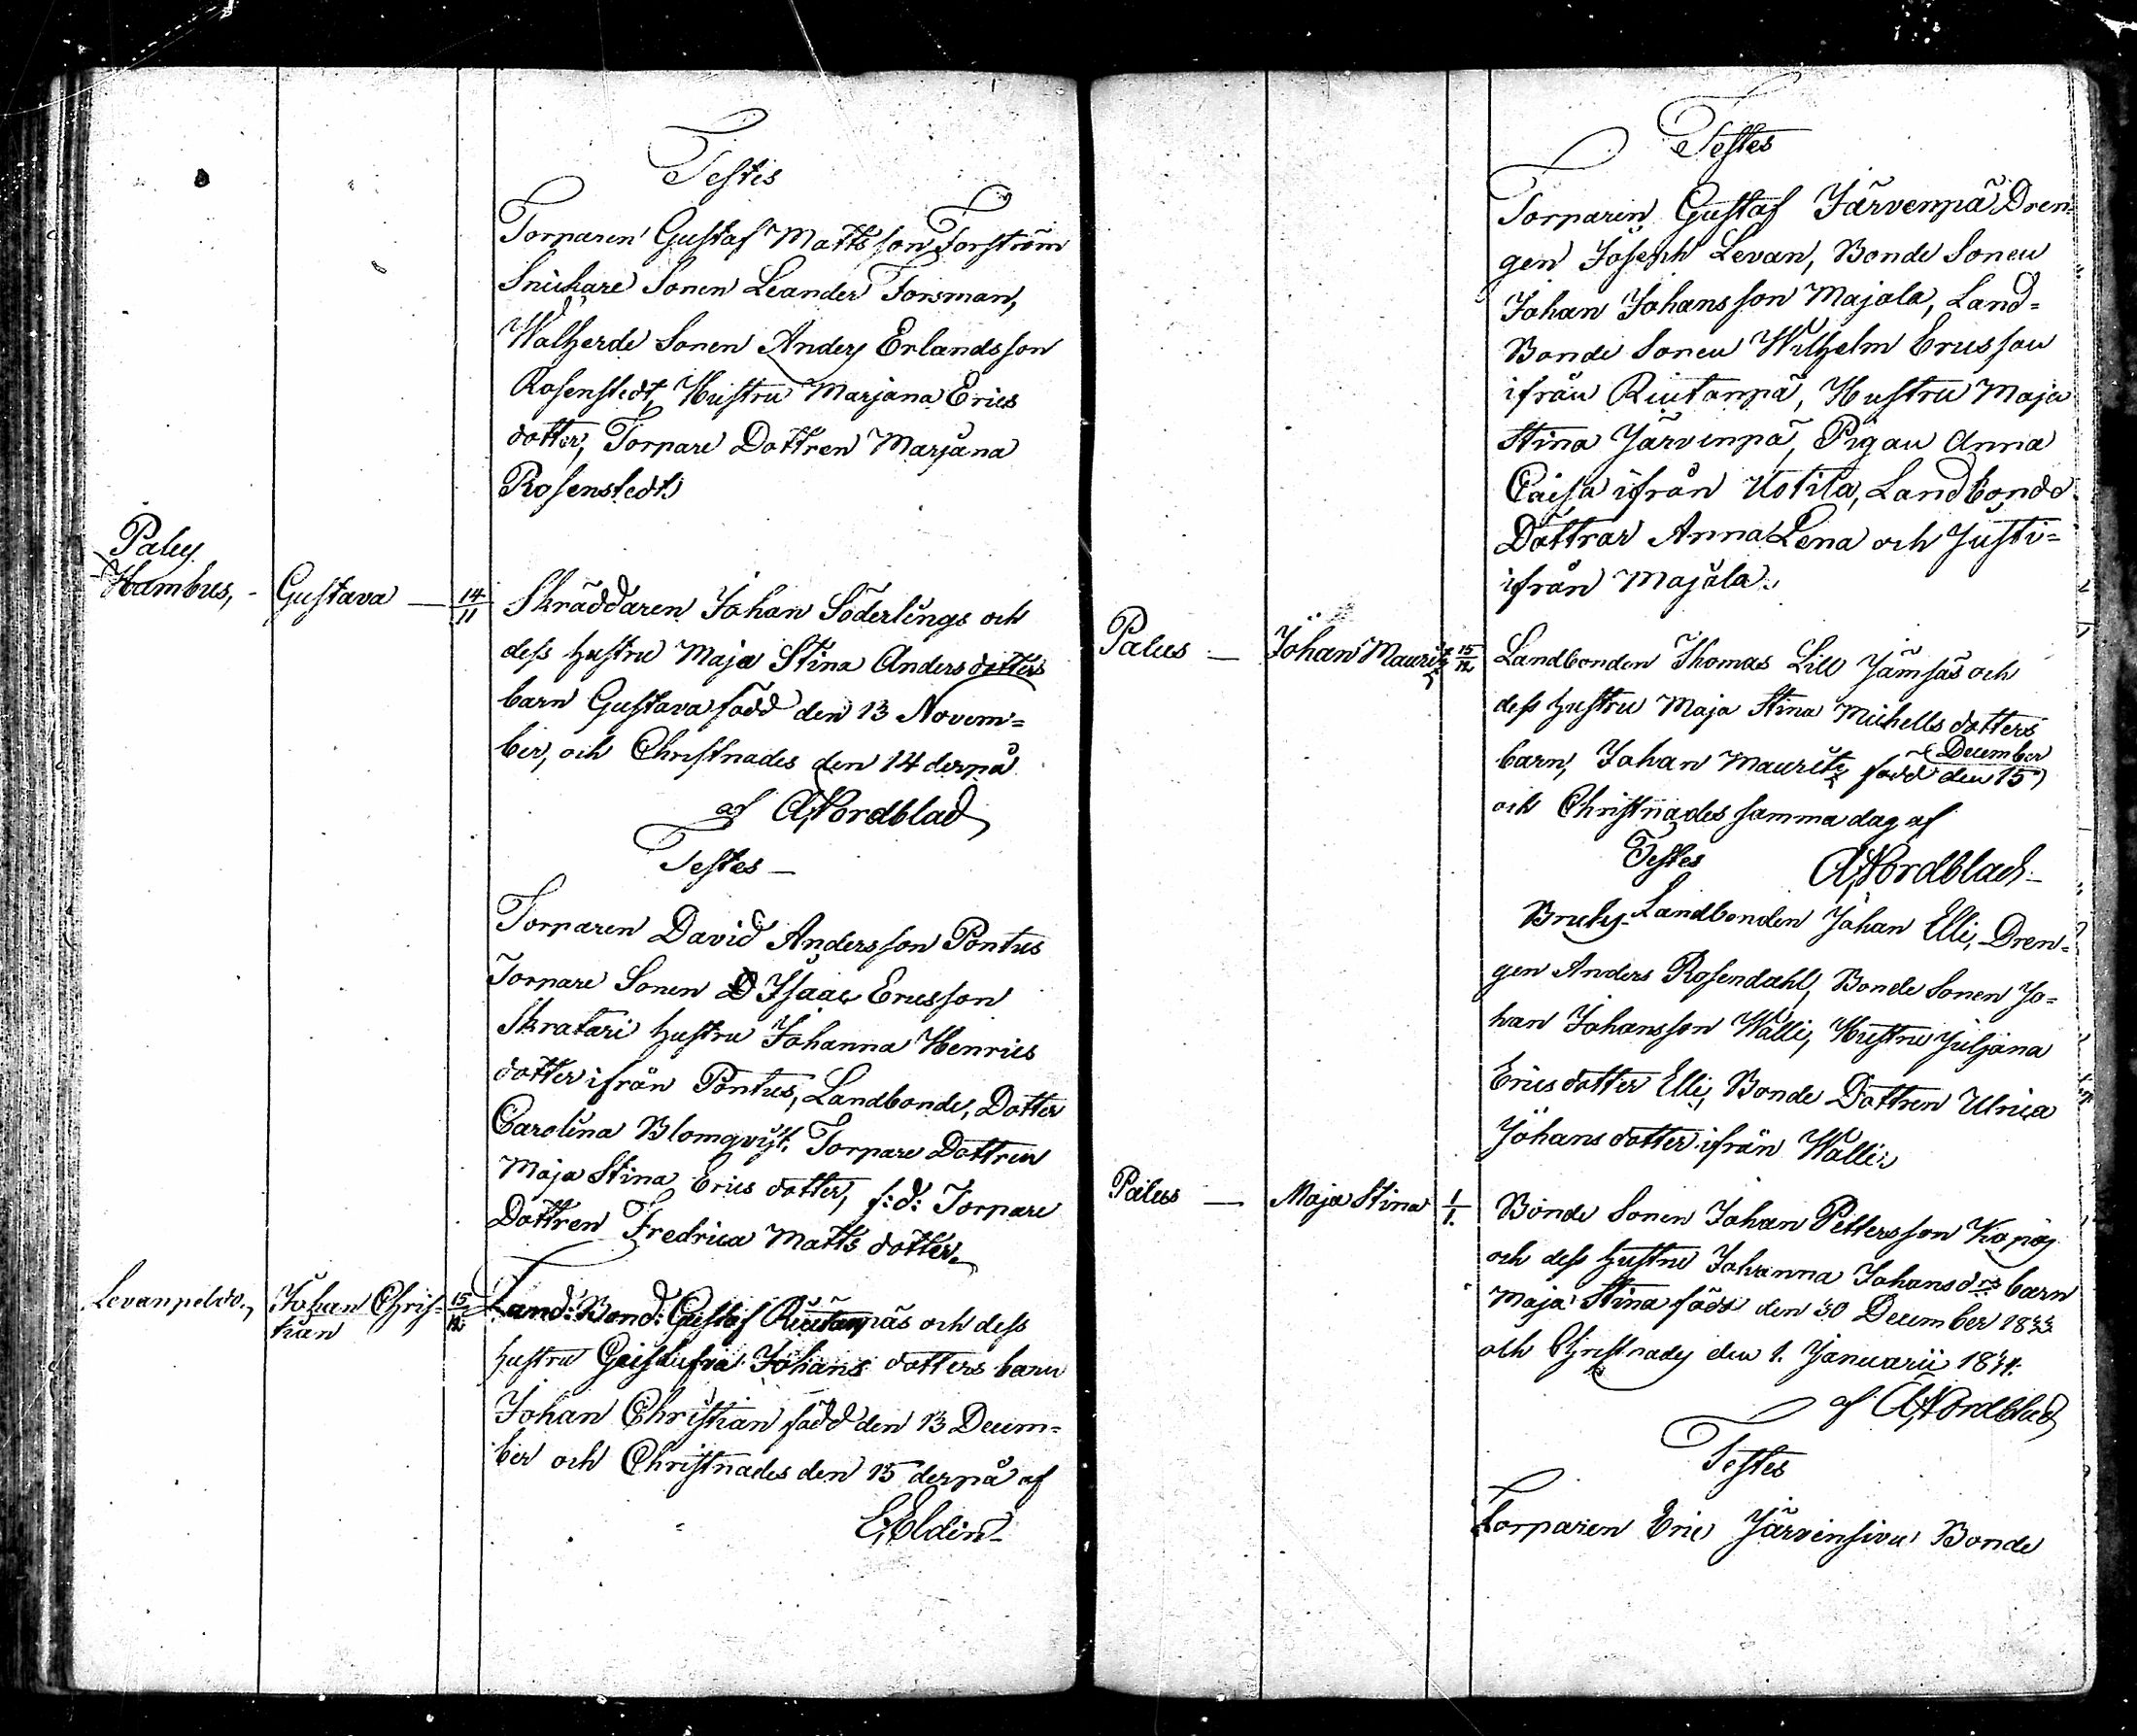 Testis
Torparen Gustaf Mattsson Forström
Snickare Sonen Leander Forsman,
Walherde Sonen Anders Erlandsson
Rosenstedt, Hustru Marjana Erics
dotter, Torpare Dottren Marjana
Rosenstedt
Palus
Hambus, - Gustava — 14/11 Skräddaren Johan Söderlings och
dess hustru Maja Stina Andersdotters
barn Gustava född den 13 Novem=
ber, och Christnades den 14 derpå
af A Nordblad
Testes —
Torparen David Andersson Pontus
Torpare Sonen Isaac Ericsson
Skratari hustru Johanna Henrics
dotter ifrån Pontus, Landbonde, Dotter
Carolina Blomqvist, Torpare Dottren
Maja Stina Erics dotter, f:d: Torpare
Dottren Fredrica Matts dotter.
Levanpeldo, Johan Chris= 15/12 Land: Bond: Gustaf Riutanpäs och dess
tian
hustru Johans dotters barn
Johan Christian född den 13 Decem=
ber och Christnades den 15 derpå af
E Eldin
Testes
Torparen Gustaf Järvenpä Dren=
gen Joseph Levan, Bonde Sonen
Johan Johansson Majala, Land=
Bonde Sonen Wilhelm Ericsson
ifrån Riutanpä, Hustru Maja
Stina Järvenpä, Pigan Anna
Caisa ifrån Uotila, Landbonde
Döttrar Anna Lena och Justi=
ifrån Majala.
Palus — Johan Mauritz 15/12 Landbonden Thomas Lill Jämsäs och
dess hustru Maja Stina Michells dotters
barn, Johan Mauritz född den 15 December
och Christnades samma dag af
Testes A Nordblad
Bruks Landbonden Johan Elli, Dren=
gen Anders Rosendahl, Bonde Sonen Jo=
han Johansson Walli, Hustru Juljana
Ericsdotter Elli, Bonde Dottren Ulrica
Johansdotter ifrån Walli.
Palus — Maja Stina 1/1. Bonde Sonen Johan Pettersson
och dess hustru Johanna Johansdrs barn
Maja Stina född den 30 December 1833
och Christnades den 1. Januarii 1834.
af A Nordblad
Testes
Torparen Eric Järvensivu Bonde